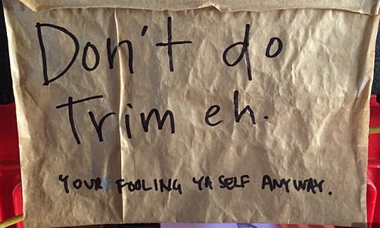 Don't do
Trim eh.
YOUR FOOLING YA SELF ANYWAY.